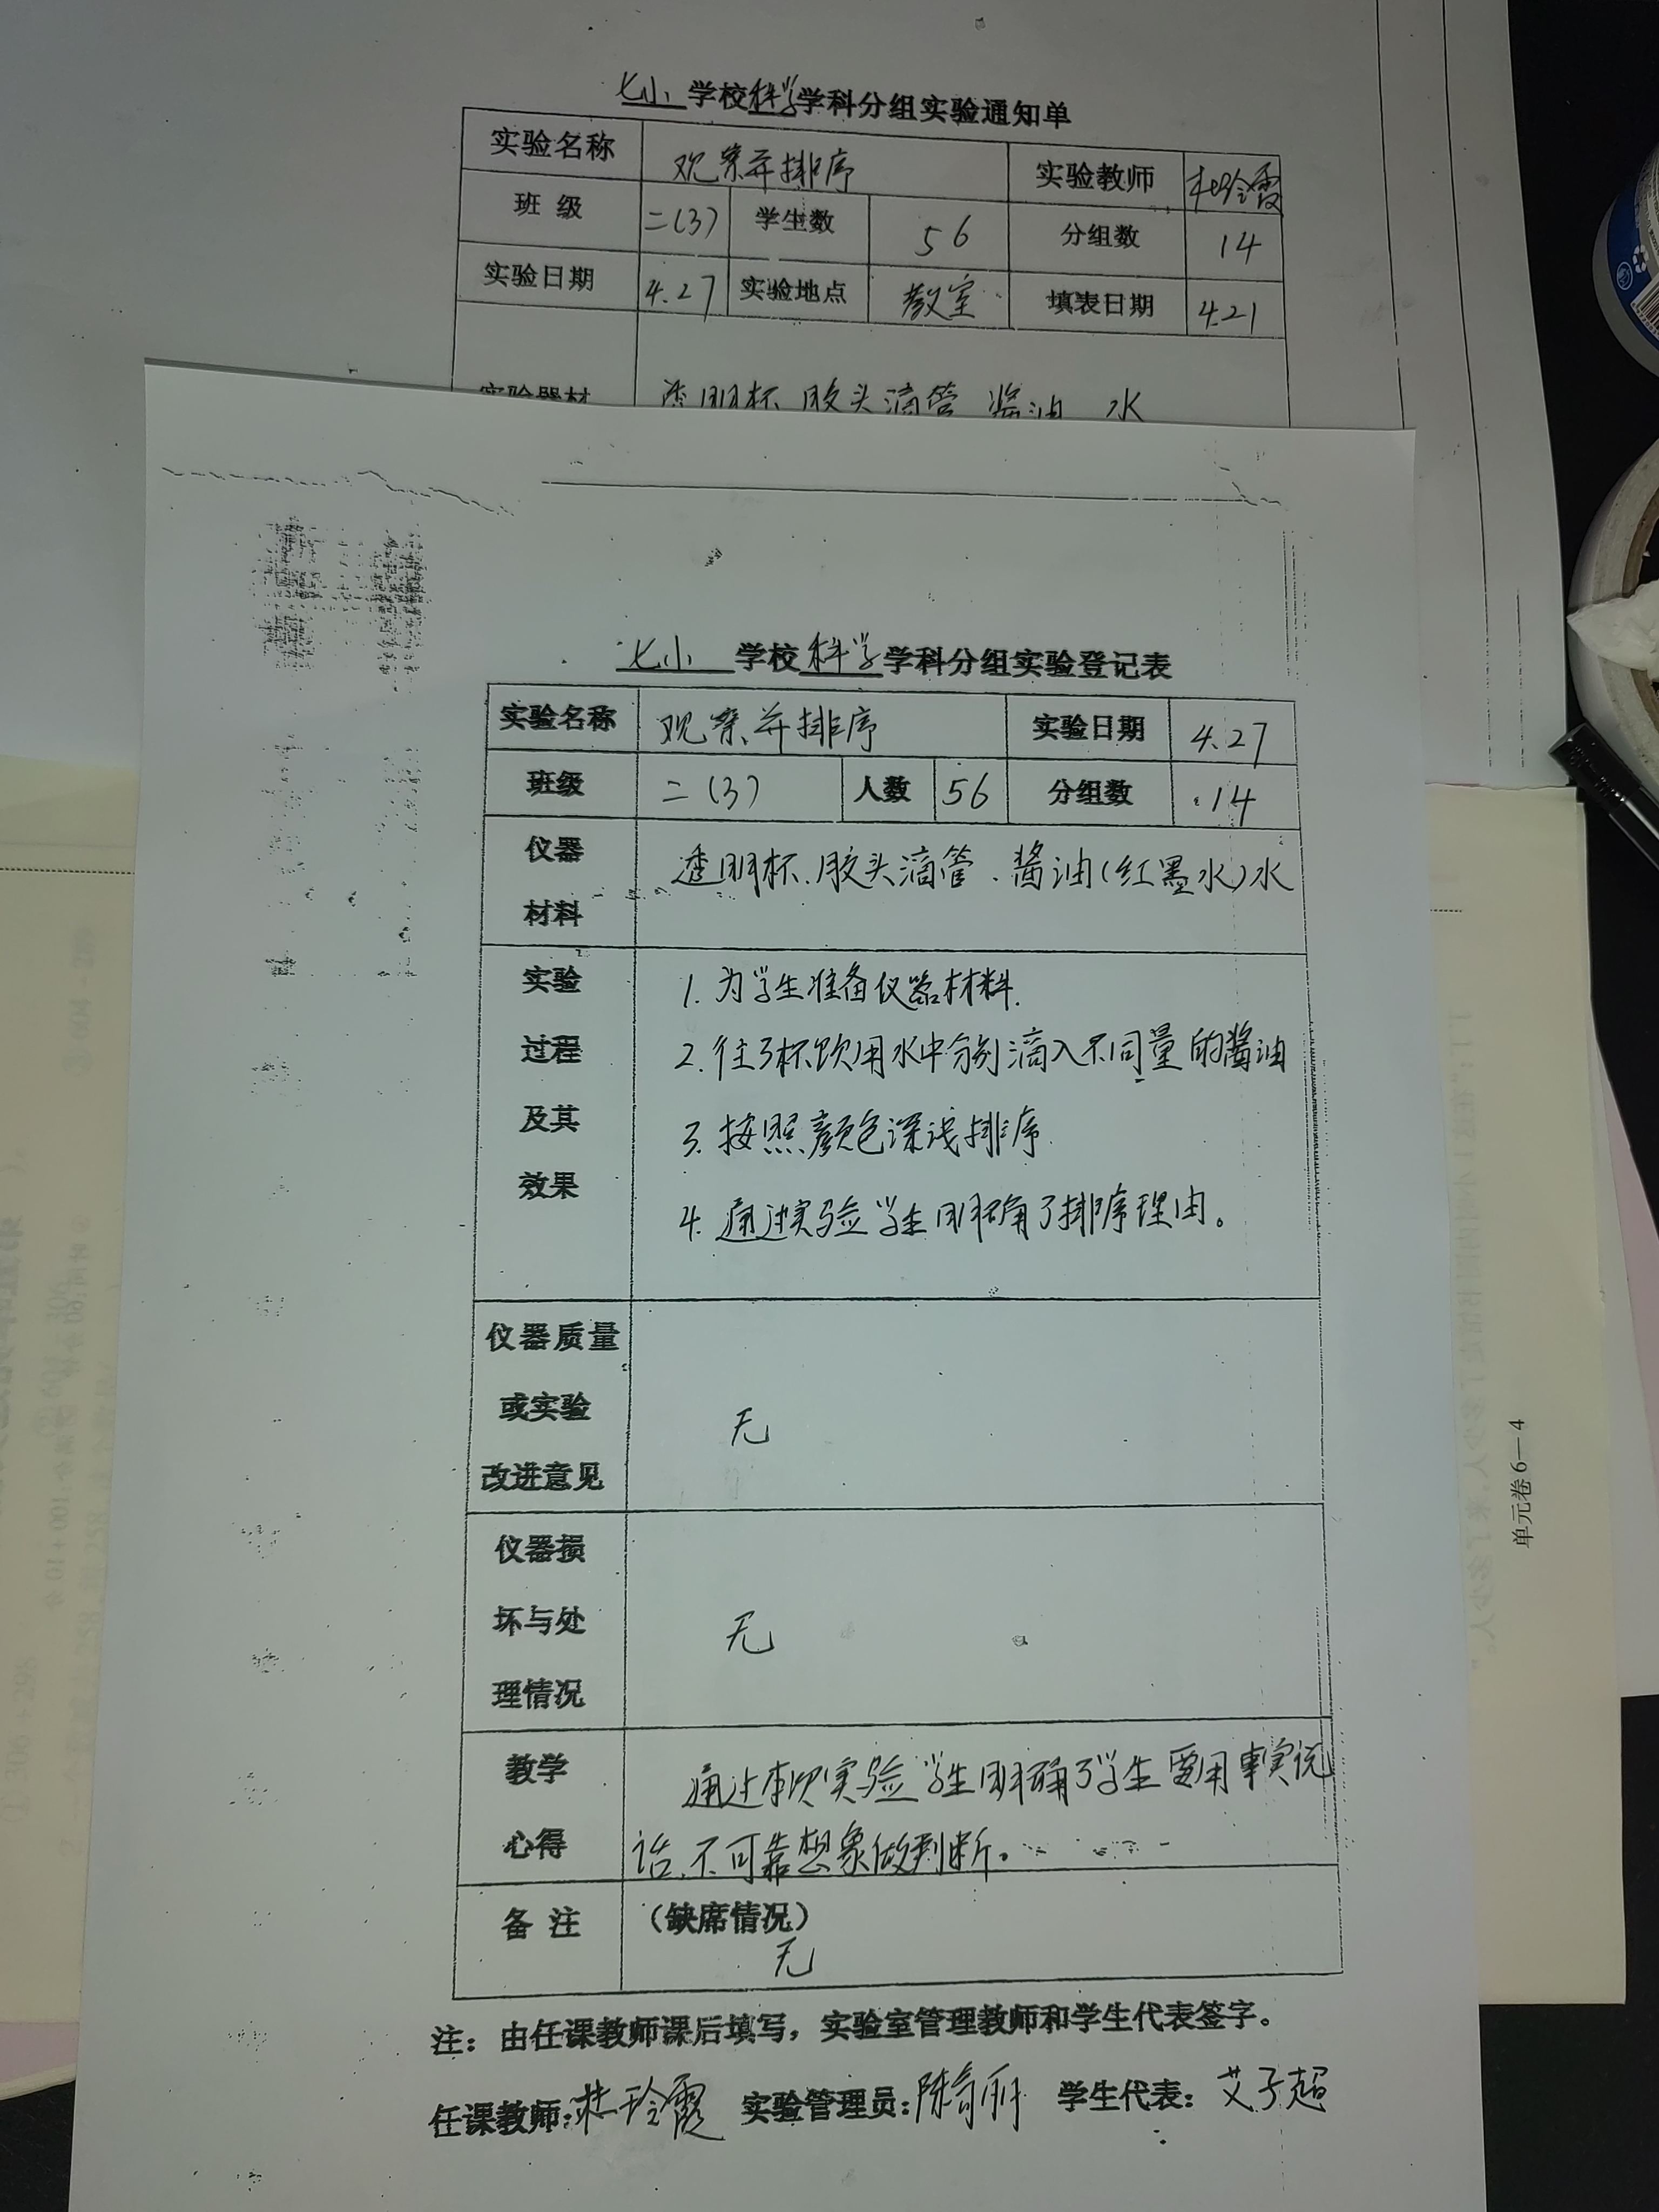 七小 学校科学学科分组实验通知单
实验名称 观察并排序 实验教师
班级 二(3) 学生数 56 分组数 14
实验日期 4.27 实验地点 教室 填表日期 4.21
实验器材 透明杯、胶头滴管 酱油 水
七小 学校科学学科分组实验登记表
实验名称 观察并排序 实验日期 4.27
班级 二(3) 人数 56 分组数 14
仪器
材料
透明杯、胶头滴管、酱油(红墨水)水
实验
过程
及其
效果
1. 为学生准备仪器材料.
2. 往3杯饮用水中分别滴入不同量的酱油
3. 按照颜色深浅排序.
4. 通过实验学生明确了排序理由。
仪器质量
或实验
改进意见
无
仪器损
坏与处
理情况
无
教学
心得
通过本次实验学生明确了学生要用事实说
话、不可靠想象做判断。
备注 (缺席情况)
无
注：由任课教师课后填写，实验室管理教师和学生代表签字。
任课教师： 实验管理员： 学生代表：艾子超
单元卷6—4